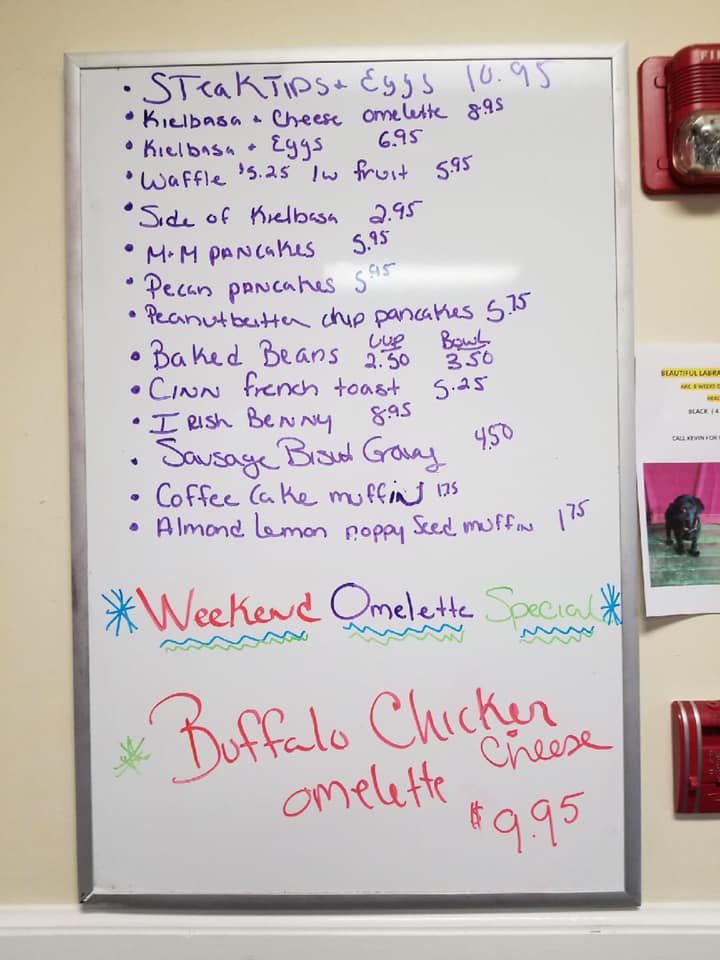 • STeaKTIPS + Eggs 10.95
• Kielbasa + Cheese omelette 8.95
• Kielbasa + Eggs 6.95
• Waffle $5.25 /w fruit 5.95
• Side of Kielbasa 2.95
• M+M PANCAKES 5.95
• Pecan PANCAKes 5.95
• Peanutbutter chip pancakes 5.75
Cup Bowl
• Baked Beans 2.50 3.50
• CINN french toast 5.25
• IRISH BENNY 8.95
• Sausage Gravy 4.50
• Coffee Cake muffin 1.75
• Almond Lemon Poppy Seed muffin 1.75
Weekend Omelette Special
Buffalo Chicken
Cheese
omelette
$9.95
FI
BEAUTIFUL LABRA
ARE 8 WEEKS
BLACK (4
CALL KEVIN FOR